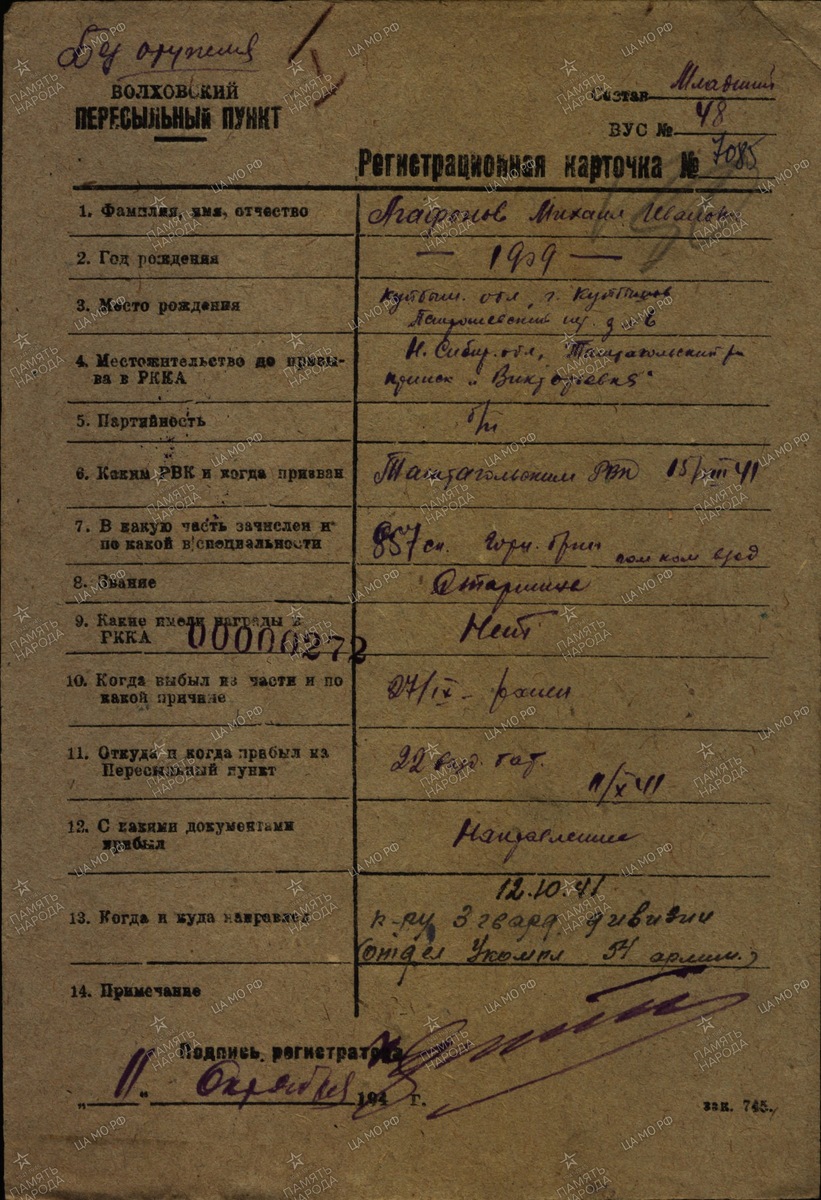 Без оружия
ВОЛХОВСКИЙ
ПЕРЕСЫЛЬНЫЙ ПУНКТ
Состав Младший
ВУС № 48
Регистрационная карточка № 7085
1. Фамилия, имя, отчество Агафонов Михаил Иванов
2. Год рождения — 1909 —
3. Место рождения Куйбыш. обл, г. Куйбышев
д № 6
4. Местожительство до призы-
ва в РККА
Н. Сибир. обл, Таштагольский р-
прииск "Викторьевка"
5. Партийность б/п
6. Каким РВК и когда призван Таштагольским РВК 15/VIII 41
7. В какую часть зачислен и
по какой в/специальности
857 сп. пом ком взвод
8. Звание Старшина
9. Какие имели награды в
РККА Нет
00000272
10. Когда выбыл из части и по
какой причине
27/IX – ранен
11. Откуда и когда прибыл из
Пересыльный пункт
22 бат.
11/X 41
12. С какими документами
прибыл
Направление
13. Когда и куда направлен
12.10.41
к-ру 3 гвард. дивизии
(отдел Укомпл 54 армии.)
14. Примечание
Подпись регистратора
„ 11 " Октября 194 г.
зак. 745.
ПАМЯТЬ НАРОДА
ЦА МО РФ